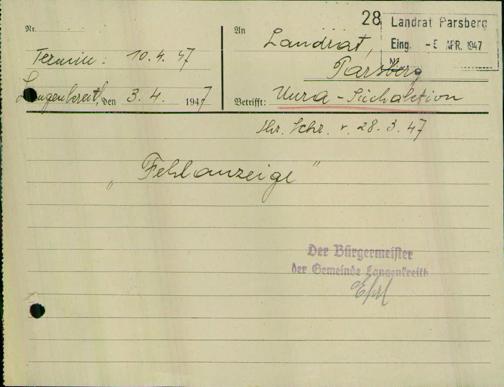 28
Landrat Parsberg
Eing. -8 APR. 1947
Nr.
Nr.
An
Termin: 10.4.47
Landrat,
Parsberg
Langenkreith, den 3.4. 1947
Betrifft: Unra-Suchaktion
Ihr. Schr. v. 28.3.47
„Fehlanzeige"
Der Bürgermeister
der Gemeinde Langenkreith